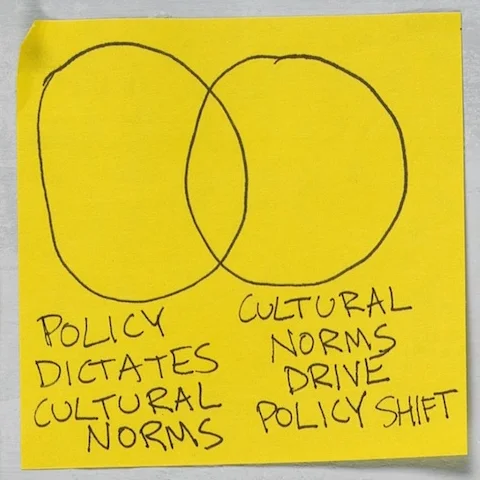 POLICY
DICTATES
CULTURAL
NORMS
CULTURAL
NORMS
DRIVE
POLICY SHIFT